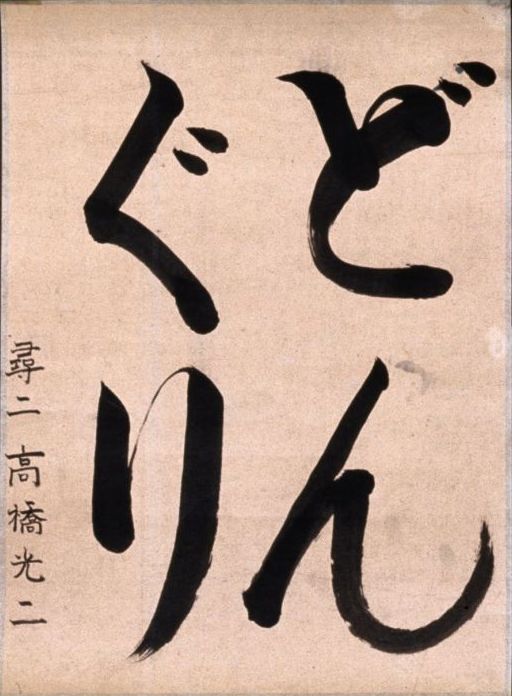 どん
ぐり
尋二 高橋光二